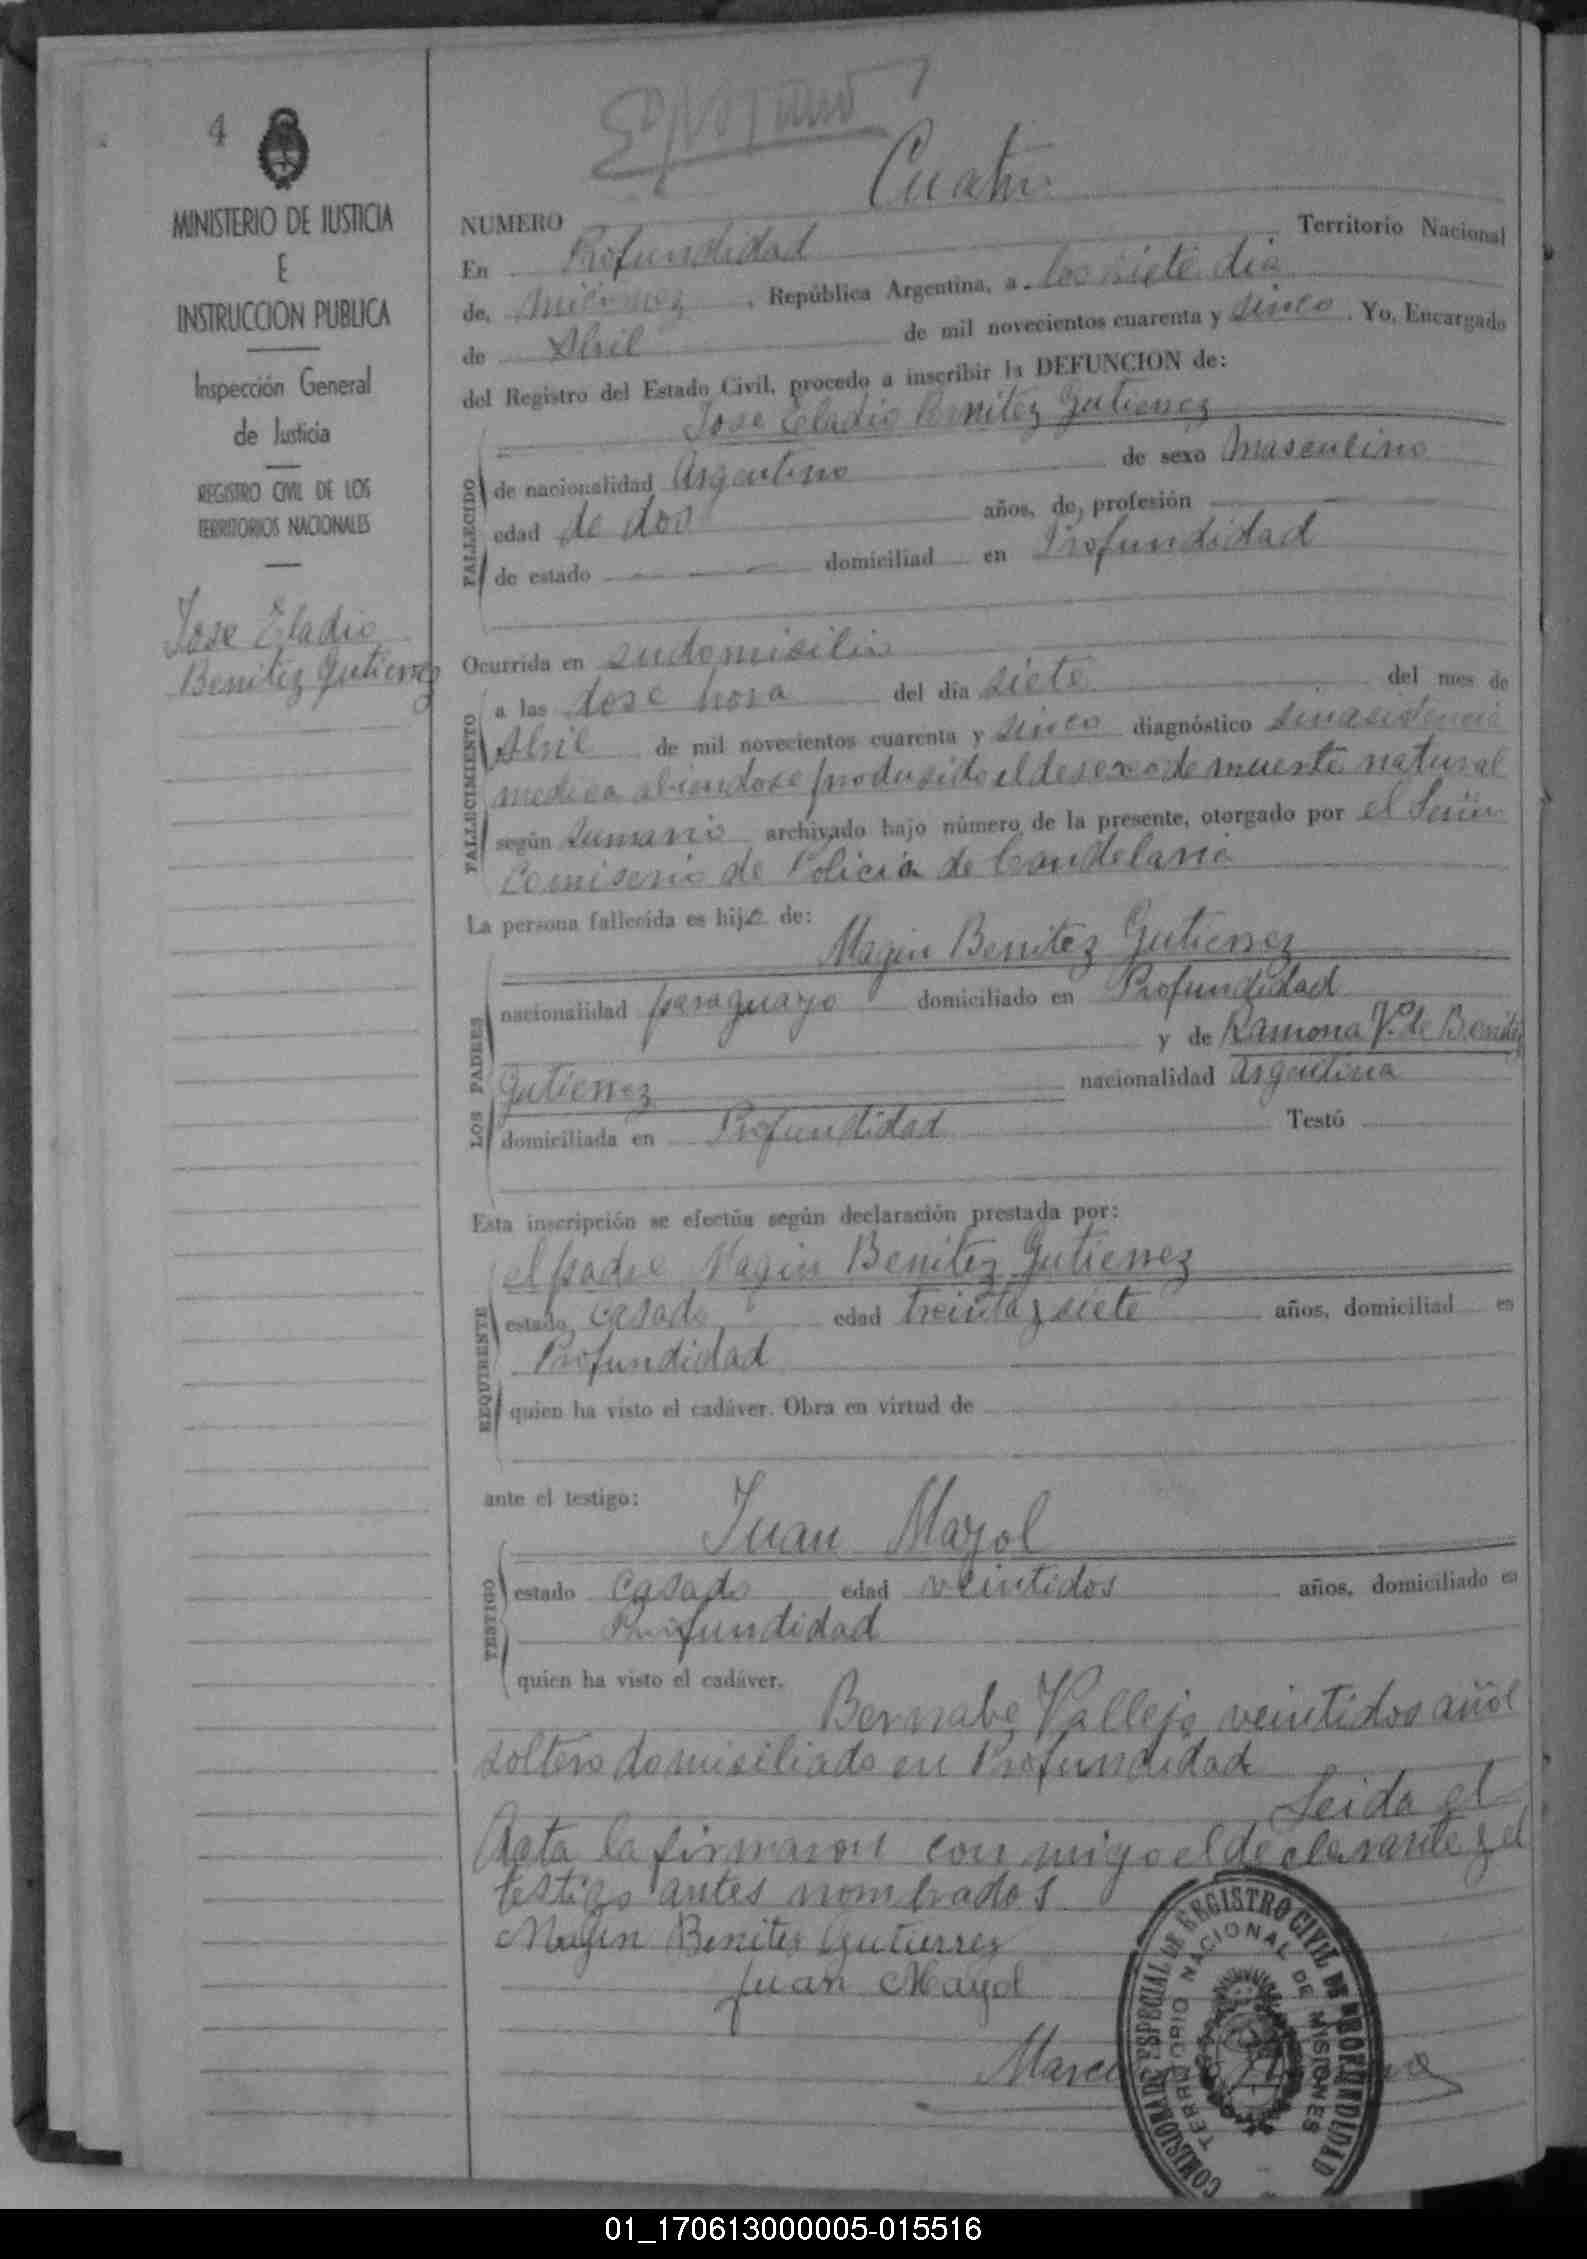 4
MINISTERIO DE JUSTICIA
E
INSTRUCCION PUBLICA
Inspección General
de Justicia
REGISTRO CIVIL DE LOS
TERRITORIOS NACIONALES
Jose Eladio
Benitez Gutierrez
NUMERO Cuatro
En Profundidad Territorio Nacional
de, Misiones, República Argentina, a los siete dia
de Abril de mil novecientos cuarenta y sinco. Yo, Encargado
del Registro del Estado Civil, procedo a inscribir la DEFUNCION de:
Jose Eladio Benitez Gutierrez
FALLECIDO
de nacionalidad Argentino de sexo Masculino
edad de dos años, de, profesión
de estado domiciliad en Profundidad
Ocurrida en sudomisilio
FALLECIMIENTO
a las dose hora del día siete del mes de
Abril de mil novecientos cuarenta y sinco diagnóstico sinasistencia
medica abiendose produsido el deseso de muerte natural
según sumario archivado bajo número de la presente, otorgado por el Señor
Comisario de Policia de Candelaria
La persona fallecida es hijo de:
LOS PADRES
Magin Benitez Gutierrez
nacionalidad paraguayo domiciliado en Profundidad
y de Ramona V. de Benitez
Gutierrez nacionalidad argentina
domiciliada en Profundidad Testó
Esta inscripción se efectúa según declaración prestada por:
REQUIRENTE
el padre Magin Benitez Gutierrez
estado casado edad treinta y siete años, domiciliad en
Profundidad
quien ha visto el cadáver. Obra en virtud de
ante el testigo:
TESTIGO
Juan Mayol
estado casado edad veintidos años, domiciliado en
Profundidad
quien ha visto el cadáver.
Bernabe Vallejo veintidos años
soltero domisiliado en Profundidad
Leida el
Acta la firmaron con migo el declarante y el
testigo antes nombrados
Magin Benitez Gutierrez
Juan Mayol
COMISION ESPECIAL DE REGISTRO CIVIL DE PROFUNDIDAD
TERRITORIO NACIONAL DE MISIONES
01_170613000005-015516